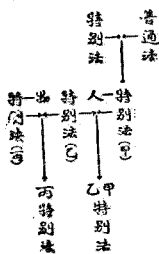 普通法
特別法
特別法(甲)
人
特別法(乙)
出
特別法(丙)
甲乙特別法
丙特別法